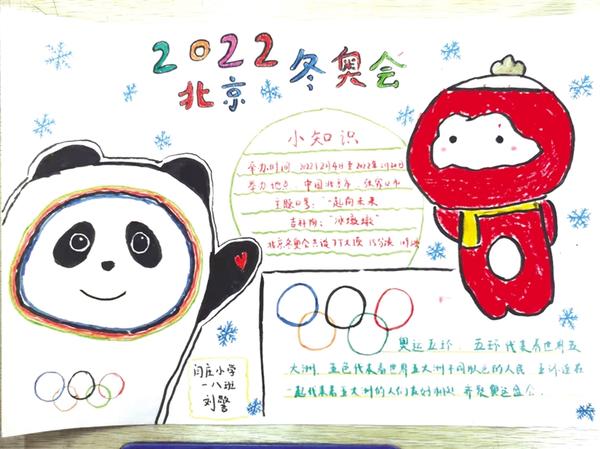 2022
北京冬奥会
小知识
举办时间：2022年2月4日至2022年2月20日
举办地点：中国北京市、张家口市
主题口号："一起向未来
吉祥物："冰墩墩"
北京冬奥会共设7个大项 15分项 109
奥运五环，五环代表着世界五
大洲，五色代表着世界五大洲不同肤色的人民 五环连在
一起代表着五大洲的人们友好 齐聚奥运盛会。
闫庄小学
一八班
刘警